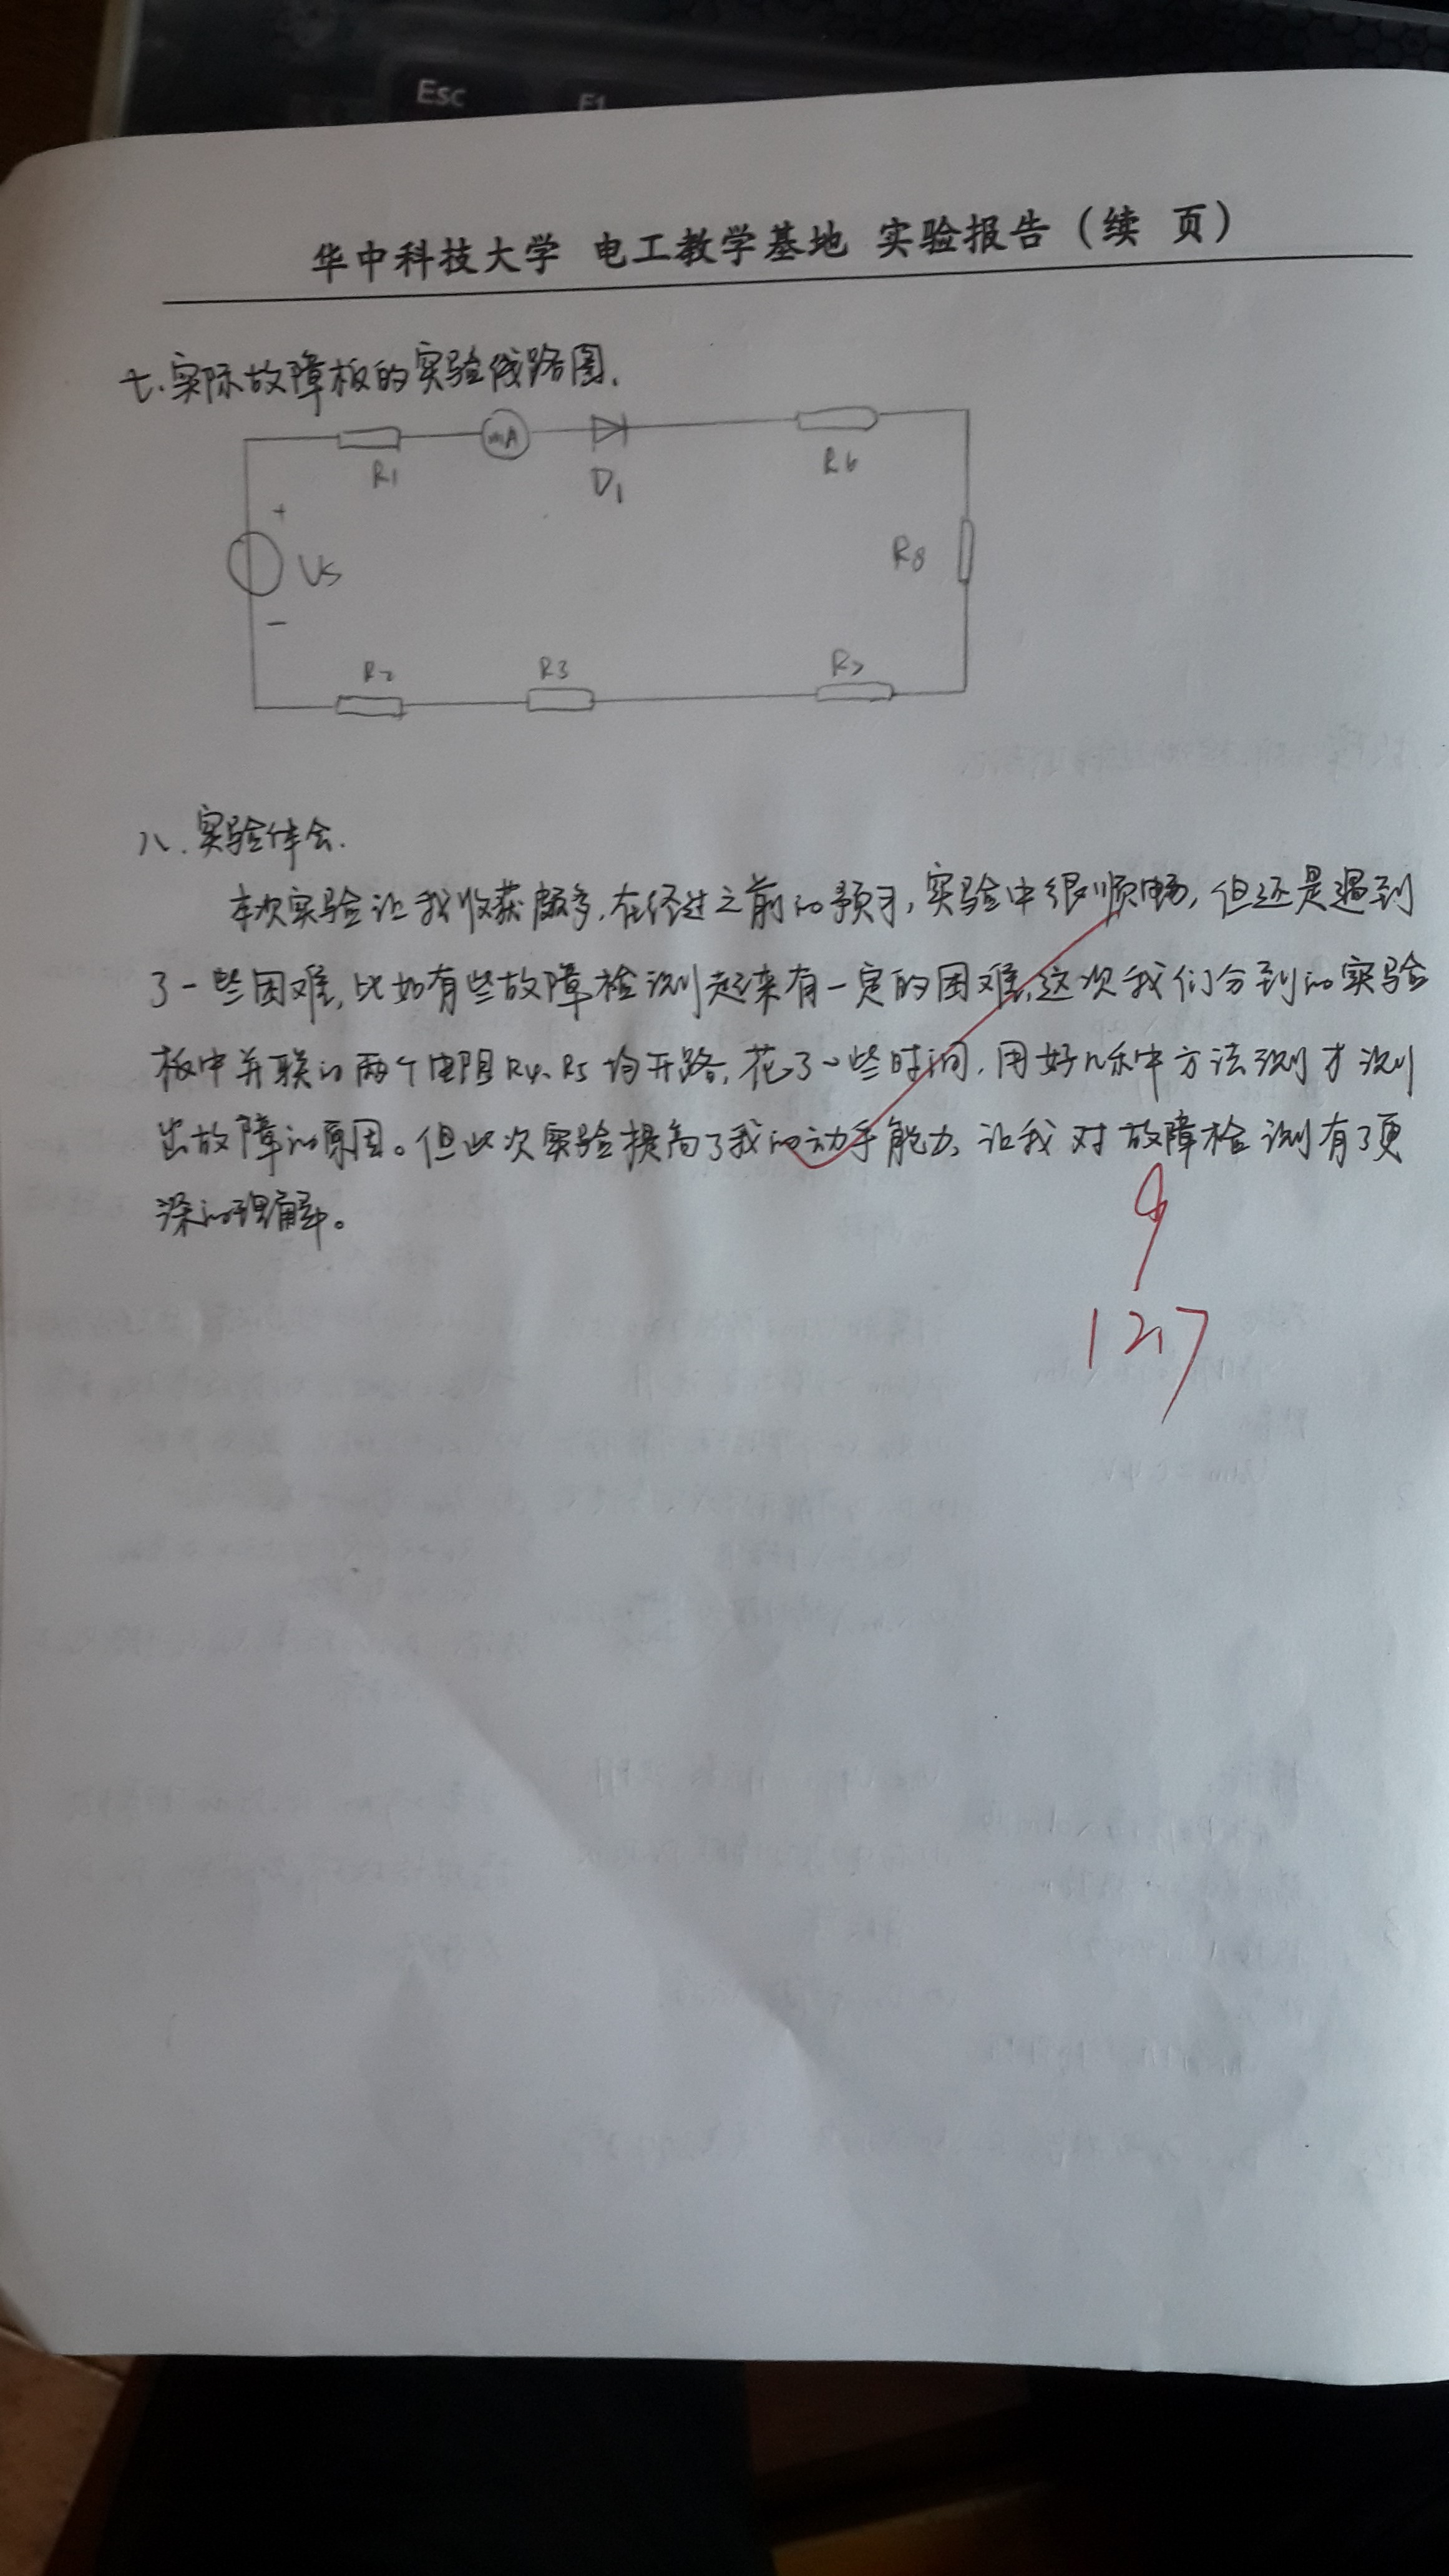 Esc
F1
华中科技大学 电工教学基地 实验报告（续 页）
七.实际故障板的实验线路图.
R1
mA
D1
R6
+
Vs
R8
-
R2
R3
R7
八.实验体会.
本次实验让我收获颇多,在经过之前的预习,实验中很顺畅,但还是遇到
了一些困难,比如有些故障检测起来有一定的困难,这次我们分到的实验
板中并联的两个电阻R4、R5均开路,花了一些时间,用好几种方法测才测
出故障的原因。但此次实验提高了我的动手能力,让我对故障检测有了更
深的理解。
9
12.7